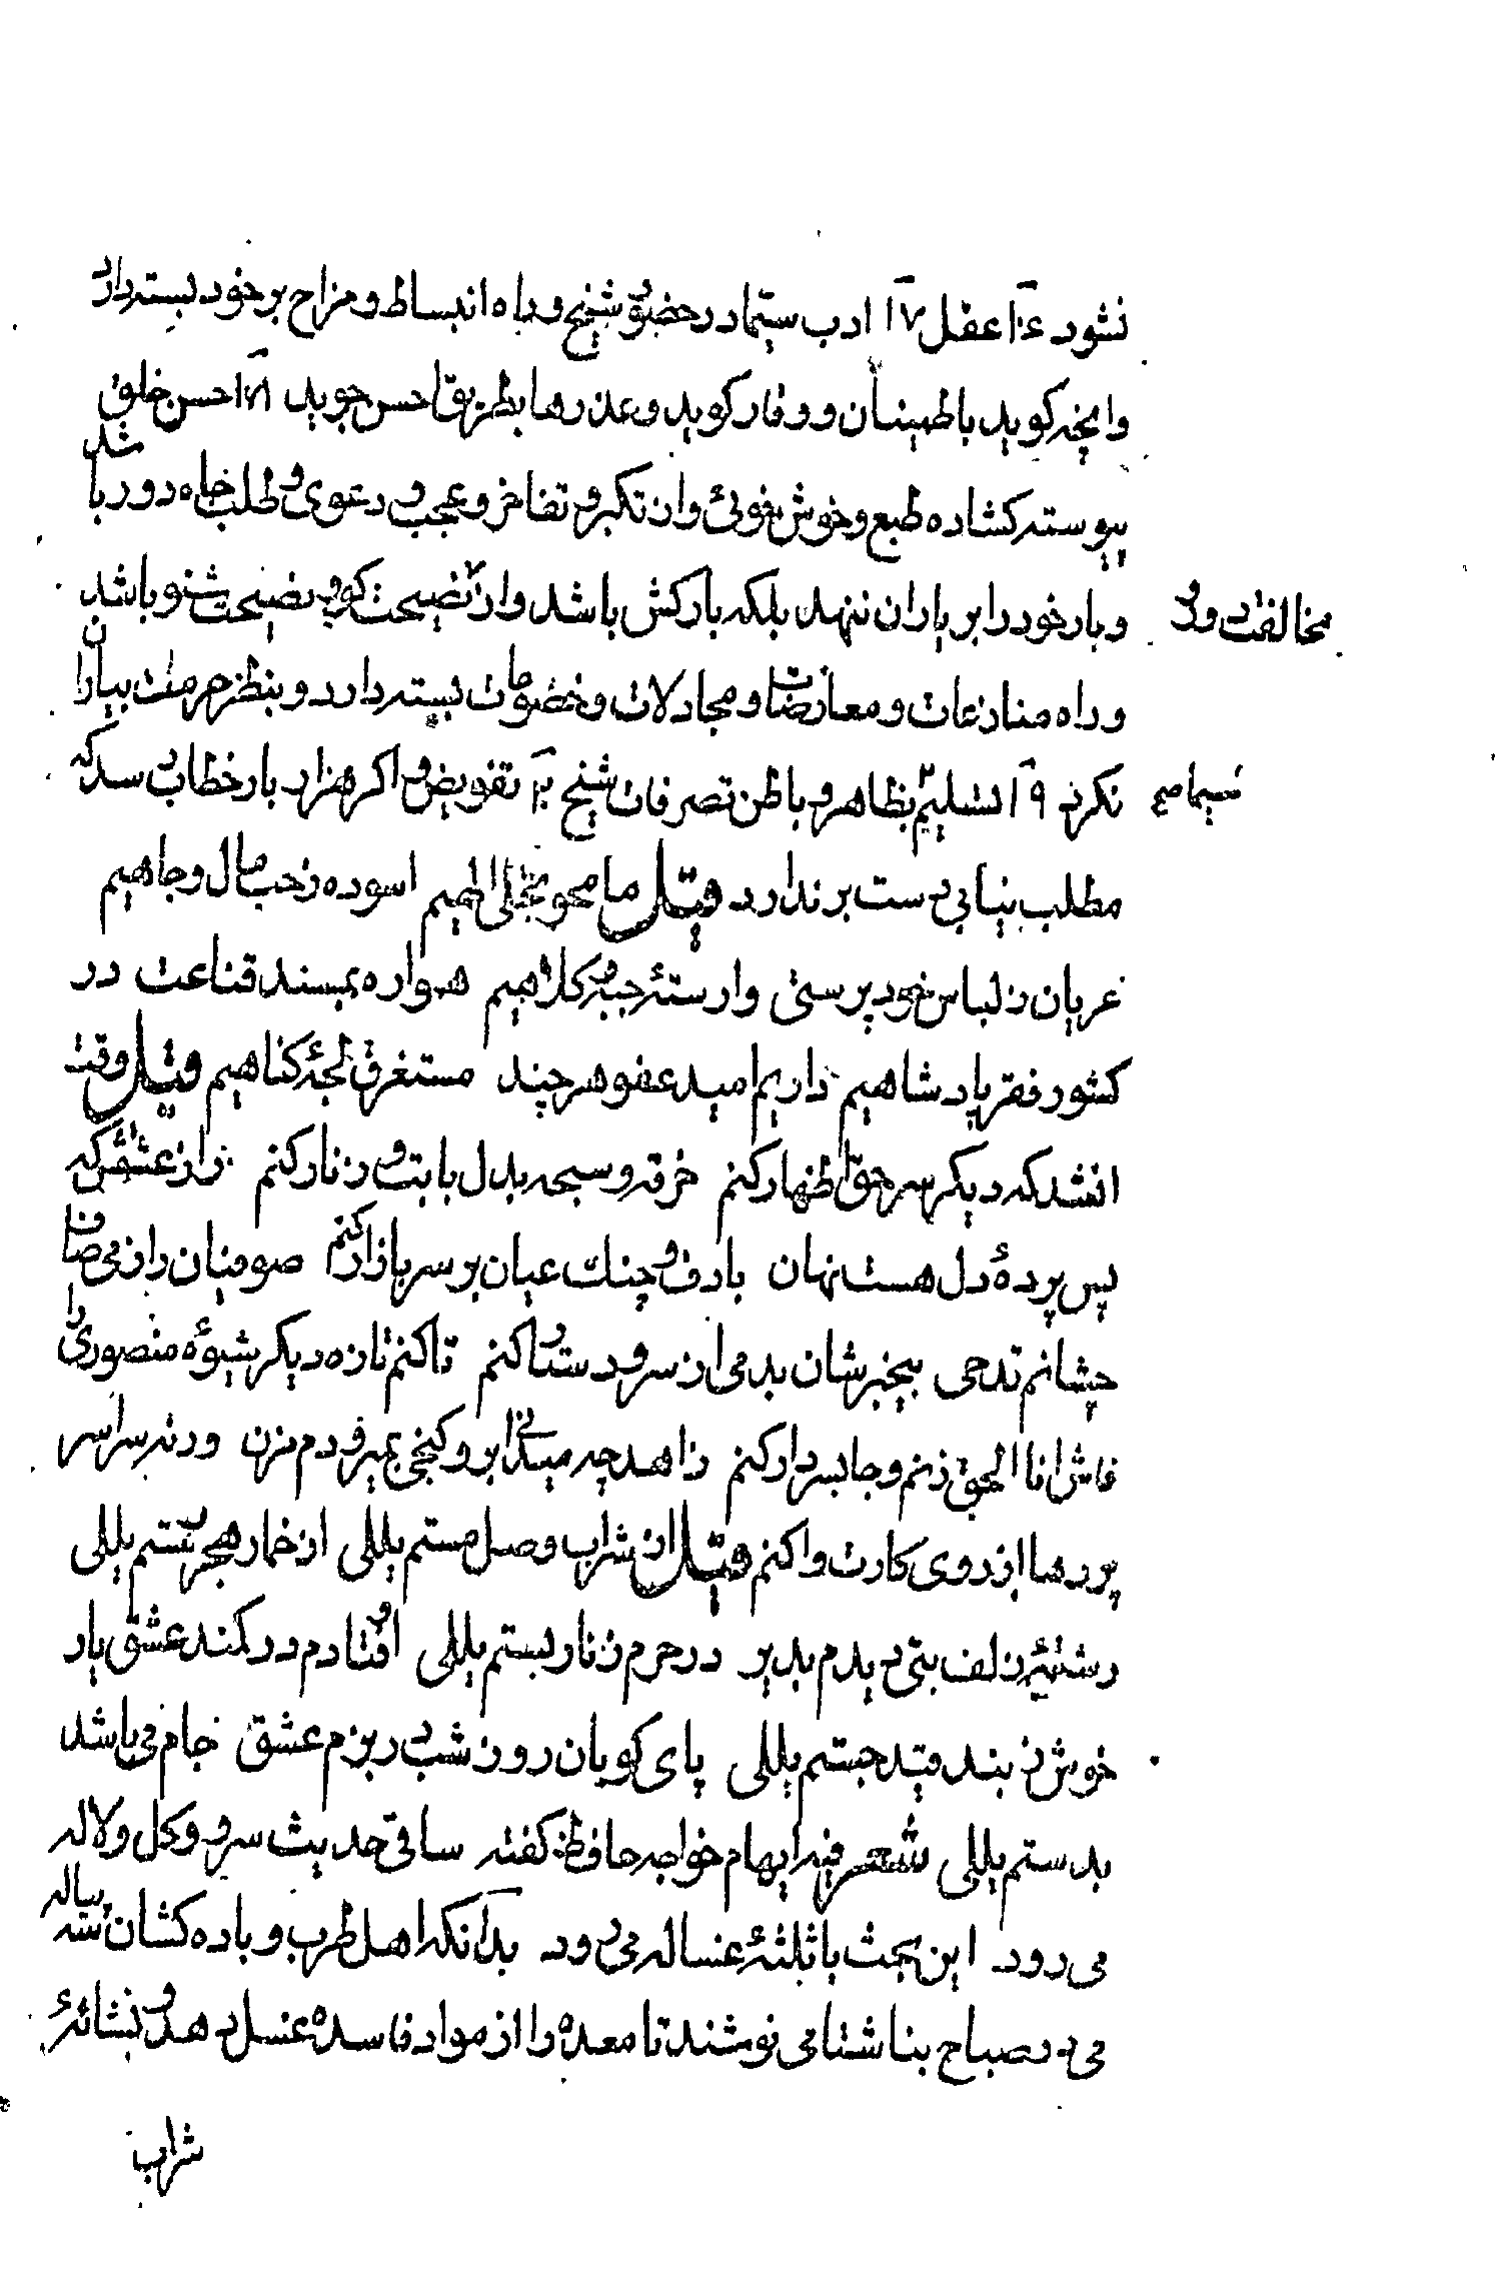 نشود ۱۶ عقل ۱۷ ادب سیّما در حضور شیخ و راه انبساط و مزاح بر خود بسته دارد
وانچه کوید باطمینان و وقار کوید و عذرها بطریق احسن جوید ۱۸ حسن خلق
پیوسته کشاده طبع و خوش خوئی و از تکبر و تفاخر و عجب و دعوی و طلب جاه دور باشد
و بار خود را بر یاران ننهد بلکه بارکش باشد و از نصیحت کو و نصیحت شنو باشد
مخالفت و
و راه منازعات و معارضات و مجادلات و خصومات بسته دارد و بنظر حرمت بیاران
نکرد ۱۹ تسلیم بظاهر و باطن تصرفات شیخ ۲۰ تفویض و اکر هزار بار خطاب رسد که
مطلب نیابی دست برندارد قیل ما محو تجلی الهیم اسوده ز حب مال و جاهیم
عریان ز لباس خود پرستی وارستهٔ جبه و کلاهیم همواره بمسند قناعت در
کشور فقر پادشاهیم داریم امید عفو هر چند مستغرق لجهٔ کناهیم قیل وقت
انشد که دیکر سر حق اظهار کنم خرقه و سبحه بدل با بت و زنار کنم راز عشق که
پس پردهٔ دل هست نهان با دف و چنك عیان بر سر بازار کنم صوفیان را ز می صاف
چشانم قدحی بیخبرشان بدمی از سر و دستار کنم تا کنم تازه دیکر شیوهٔ منصوری را
فاش انا الحق زنم و جا بسر دار کنم زاهد چه میدانی ابرو کنجی بمیر و دم مزن ورنه سراسر
پردها از روی کارت وا کنم قیل از شراب وصل مستم یللی از خمار هجر رستم یللی
رشتهٔ زلف بتی دیدم بدیر در حرم زنار بستم یللی اوفتادم در کمند عشق یار
خوش ز بند قید جستم یللی پای کوبان روز شب در بزم عشق جام می باشد
بدستم یللی شعر فیه ایهام خواجه حافظ کفته ساقی حدیث سرو و کل و لاله
می رود این بحث با ثلثهٔ غساله می رود بدانکه اهل طرب و باده کشان سه پیاله
می در صباح بناشتا می نوشند تا معده را از مواد فاسده غسل دهد و نشائهٔ
شراب